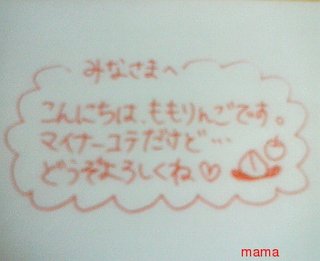 みなさまへ
こんにちは、ももりんごです。
マイナーコテだけど…
どうぞよろしくね♡
mama